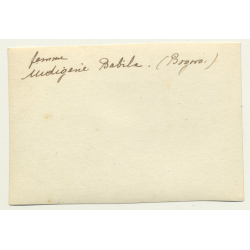 femme
indigène Babila. (Bogoro.)